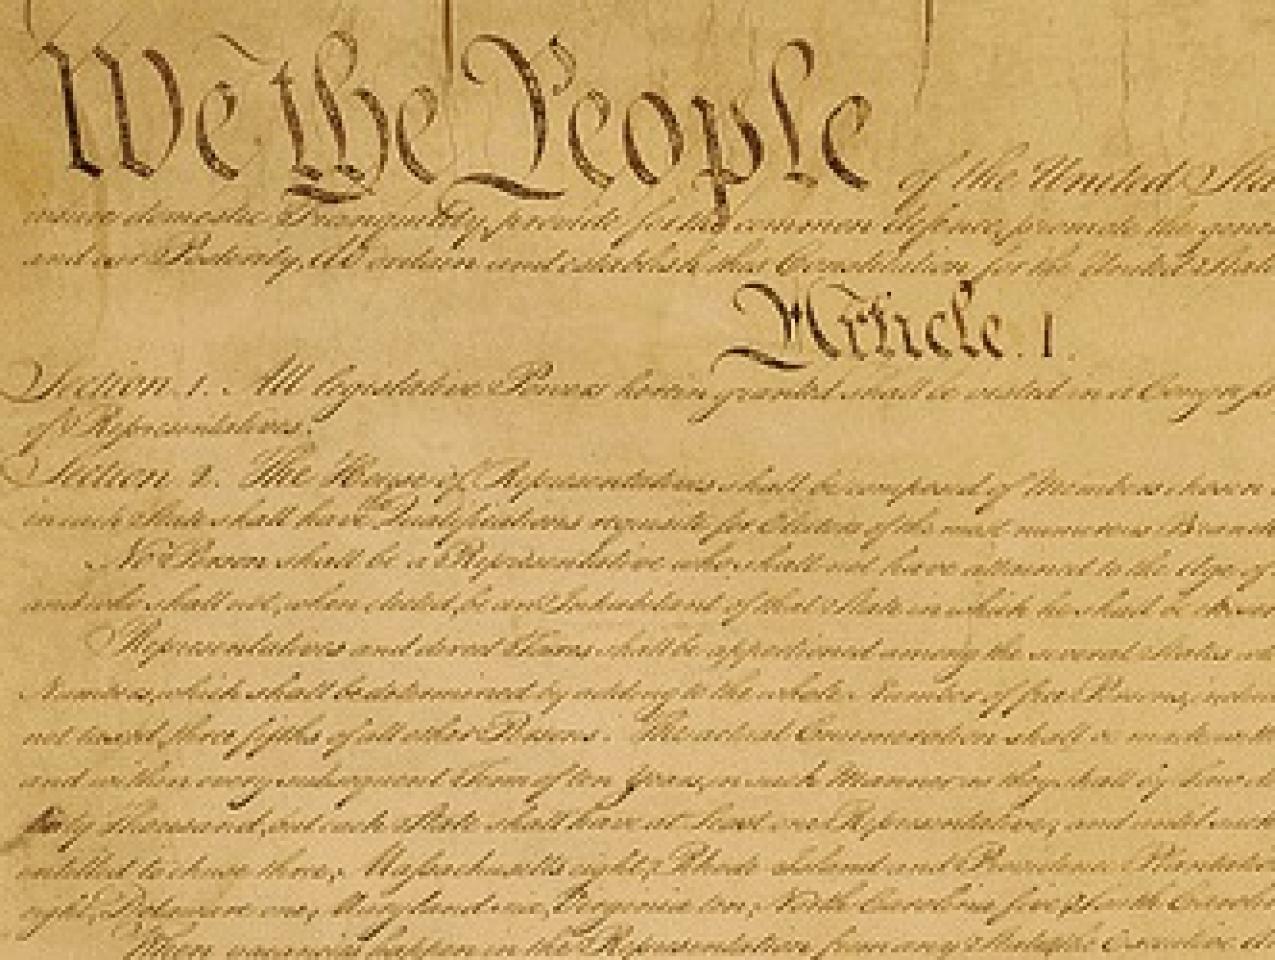 We the People of the United Sta
insure domestic Tranquility, provide for the common defence, promote the gene
and our Posterity, do ordain and establish this Constitution for the United State
Article. I.
Section. 1. All legislative Powers herein granted shall be vested in a Congress
of Representatives.
Section. 2. The House of Representatives shall be composed of Members chosen
in each State shall have the Qualifications requisite for Electors of the most numerous Branch
No Person shall be a Representative who shall not have attained to the Age of
and who shall not, when elected, be an Inhabitant of that State in which he shall be chosen
Representatives and direct Taxes shall be apportioned among the several States wh
Numbers, which shall be determined by adding to the whole Number of free Persons, inclu
not taxed, three fifths of all other Persons. The actual Enumeration shall be made
and within every subsequent Term of ten Years, in such Manner as they shall by Law
thirty Thousand, but each State shall have at Least one Representative; and until such
entitled to chuse three, Massachusetts eight, Rhode Island and Providence Plantat
eight, Delaware one, Maryland six, Virginia ten, North Carolina five, South Carol
When vacancies happen in the Representation from any State, the Executive